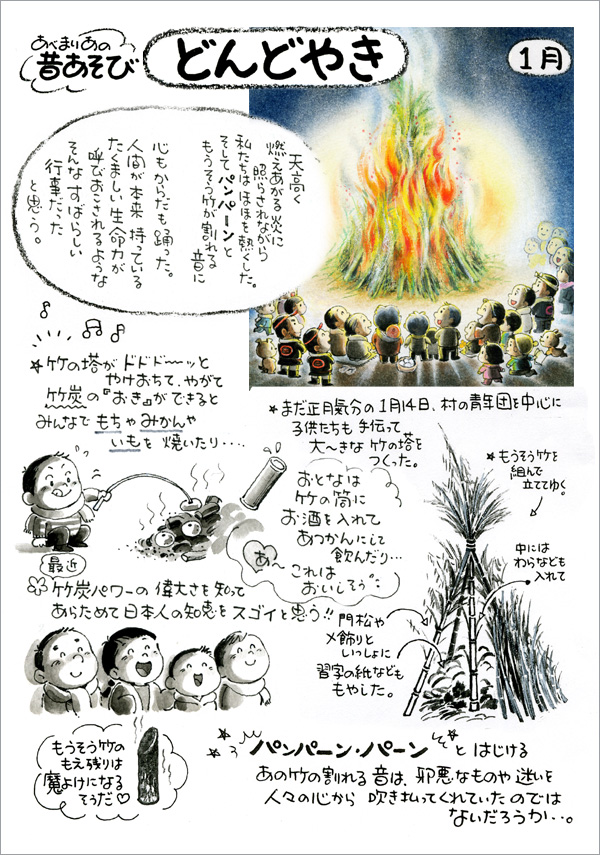 あべまりあの
昔あそび
どんどやき
1月
天高く
燃えあがる炎に
照らされながら
私たちはほほを熱くした。
そしてパンパーンと
もうそう竹が割れる
音に
心もからだも踊った。
人間が本来持っている
たくましい生命力が
呼びおこされるような
そんなすばらしい
行事だった
と思う。
★竹の塔がドドド〜〜ッと
やけおちて、やがて
竹炭の『おき』ができると
みんなでもちゃみかんや
いもを焼いたり・・・・
★まだ正月気分の1月14日、村の青年団を中心に
子供たちも手伝って
大〜きな竹の塔を
つくった。
★もうそう竹を
組んで
立ててゆく。
中には
わらなども
入れて
おとなは
竹の筒に
お酒を入れて
あつかんにして
飲んだり…
これは
おいしそう
あ〜
門松や
〆飾りと
いっしょに
習字の紙なども
もやした。
最近
竹炭パワーの偉大さを知って
あらためて日本人の知恵をスゴイと思う!!
もうそう竹の
もえ残りは
魔よけになる
そうだ♡
パンパーン・パーン とはじける
あの竹の割れる音は、邪悪なものや迷いを
人々の心から吹き払ってくれていたのでは
ないだろうか・・。